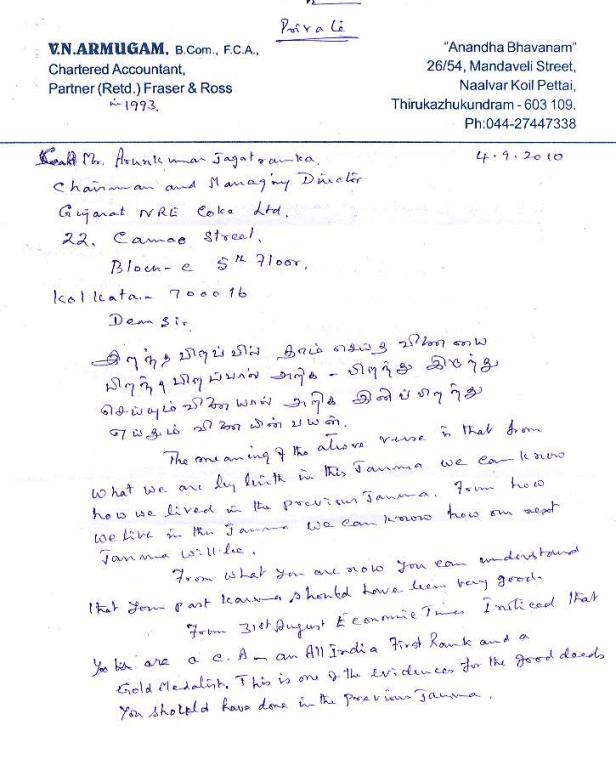 Private
V.N.ARMUGAM, B.Com., F.C.A.,
Chartered Accountant,
Partner (Retd.) Fraser & Ross
in 1993.
"Anandha Bhavanam"
26/54, Mandaveli Street,
Naalvar Koil Pettai,
Thirukazhukundram - 603 109.
Ph:044-27447338
4.9.2010
Mr. Arunkumar Jagatramka
Chairman and Managing Director
Gujarat NRE Coke Ltd.
22. Camac Street.
Block-C 5th Floor.
Kolkata - 700016
Dear Sir.
இறந்த பிறப்பில் தாம் செய்த வினையை
பிறந்த பிறப்பால் அறிக - பிறந்து இருந்து
செய்யும் வினையால் அறிக இனிப்பிறந்து
எய்தும் வினையின் பயன்.
The meaning of the above verse is that from
what we are by birth in this Janma we can know
how we lived in the previous Janma. From how
we live in this Janma we can know how our next
Janma will be.
From what you are now you can understand
that your past karma should have been very good.
From 31st August Economic Times I noticed that
You are a C.A - an All India First Rank and a
Gold Medalist. This is one of the evidences for the good deeds
You should have done in the previous Janma.